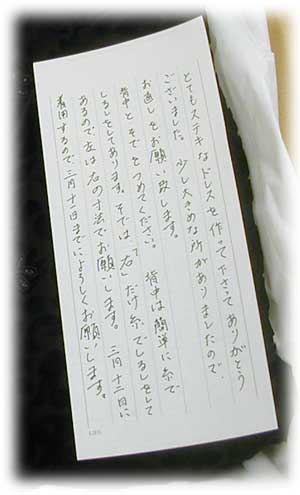 とてもステキなドレスを作って下さってありがとう
ございました。少し大きめな所がありましたので、
お直しをお願い致します。
背中とそでをつめてください。背中は簡単に糸で
しるしをしてあります。そでは「右」だけ糸でしるしをして
あるので左は右の寸法でお願いします。三月十二日に
着用するので三月十一日までによろしくお願いします。